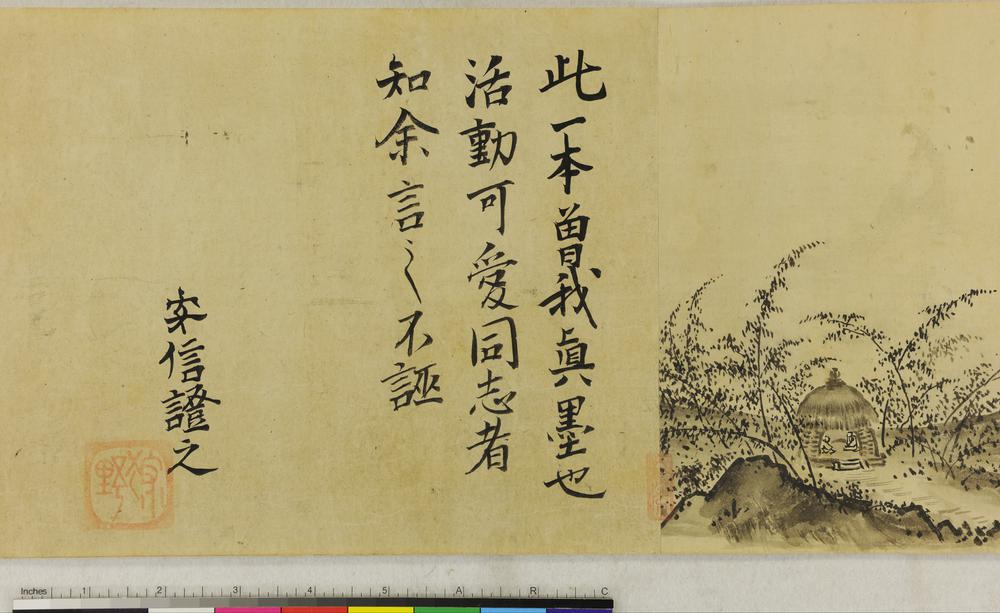 此一本曽我眞墨也
活動可愛同志者
知余言之不誣
安信證之
狩野
Inches 1 2 3 4 5 A R C